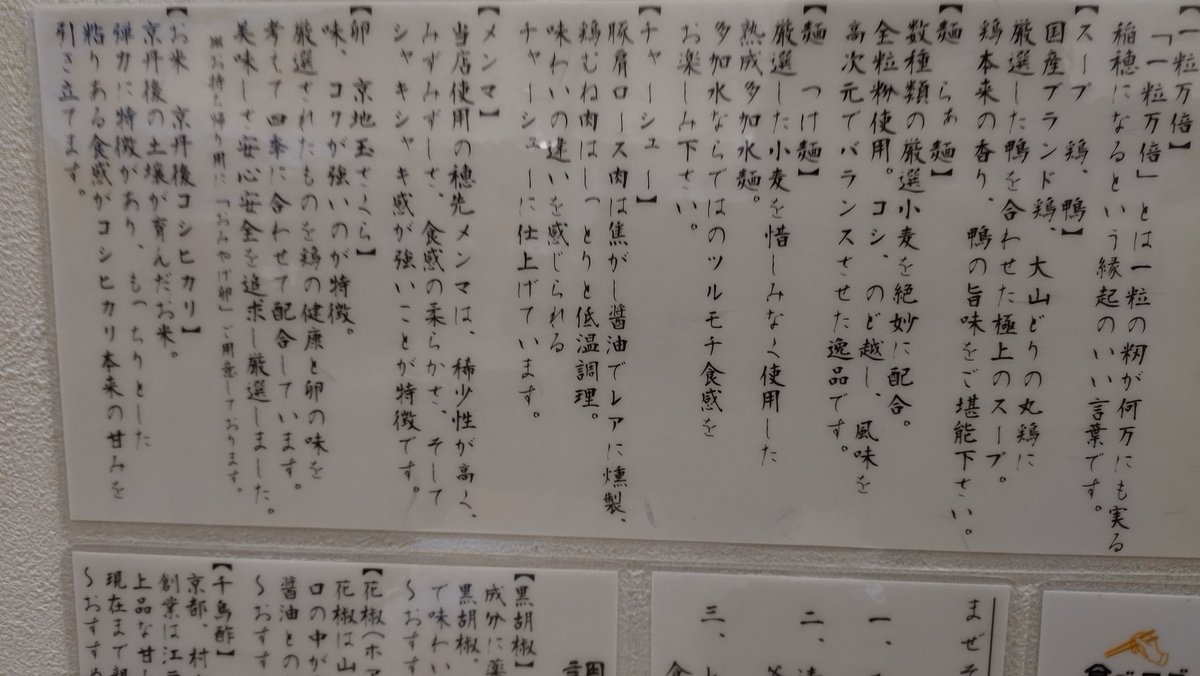 【一粒万倍】
「一粒万倍」とは一粒の籾が何万にも実る
稲穂になるという縁起のいい言葉です。
【スープ　鶏、鴨】
国産ブランド鶏、大山どりの丸鶏に
厳選した鴨を合わせた極上のスープ。
鶏本来の香り、鴨の旨味をご堪能下さい。
【麺　らぁ麺】
数種類の厳選小麦を絶妙に配合。
全粒粉使用。コシ、のど越し、風味を
高次元でバランスさせた逸品です。
【麺　つけ麺】
厳選した小麦を惜しみなく使用した
熟成多加水麺。
多加水ならではのツルモチ食感を
お楽しみ下さい。
【チャーシュー】
豚肩ロース肉は焦がし醤油でレアに燻製、
鶏むね肉はしっとりと低温調理。
味わいの違いを感じられる
チャーシューに仕上げています。
【メンマ】
当店使用の穂先メンマは、稀少性が高く、
みずみずしさ、食感の柔らかさ、そして
シャキシャキ感が強いことが特徴です。
【卵　京地玉さくら】
味、コクが強いのが特徴。
厳選されたものを鶏の健康と卵の味を
考えて四季に合わせて配合しています。
美味しさ安心安全を追求し厳選しました。
※お持ち帰り用に「おみやげ卵」ご用意しております。
【お米　京丹後コシヒカリ】
京丹後の土壌が育んだお米。
弾力に特徴があり、もっちりとした
粘りある食感がコシヒカリ本来の甘みを
引き立てます。
まぜそ
一、
二、
三、
調
【黒胡椒】
成分に薬
黒胡椒、
で味わい
〜おすす
【花椒(ホア
花椒は山
口の中が
醤油との
〜おすす
【千鳥酢】
京都、村
創業は江
上品な甘
現在まで親
〜おすすめ